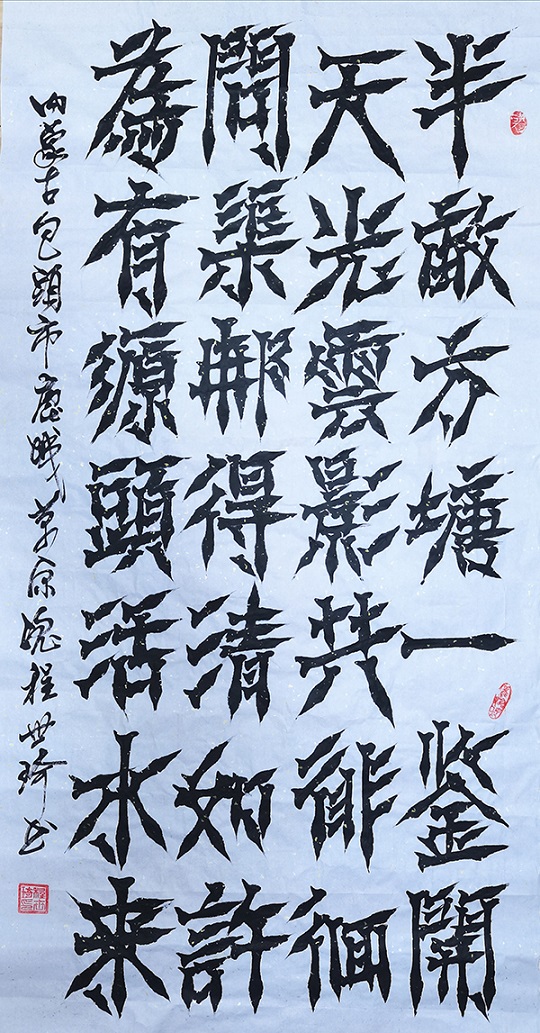 半畝方塘一鑒開
天光雲影共徘徊
問渠那得清如許
為有源頭活水來
内蒙古包頭市鹿城草原魂程世琦书